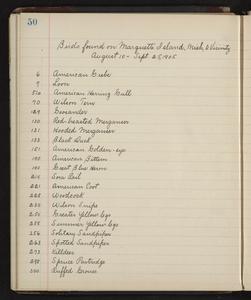 50
Birds found on Marquette Island, Mich. & Vicinity
August 10 - Sept 25, 1905
6 American Grebe
7 Loon
51a American Herring Gull
70 Wilson Tern
129 Goosander
130 Red-breasted Merganser
131 Hooded Merganser
133 Black Duck
151 American Golden-eye
190 American Bittern
194 Great Blue Heron
214 Sora Rail
221 American Coot
228 Woodcock
230 Wilson Snipe
254 Greater Yellow legs
255 Summer Yellow legs
256 Solitary Sandpiper
263 Spotted Sandpiper
273 Killdeer
298 Spruce Partridge
300 Ruffed Grouse